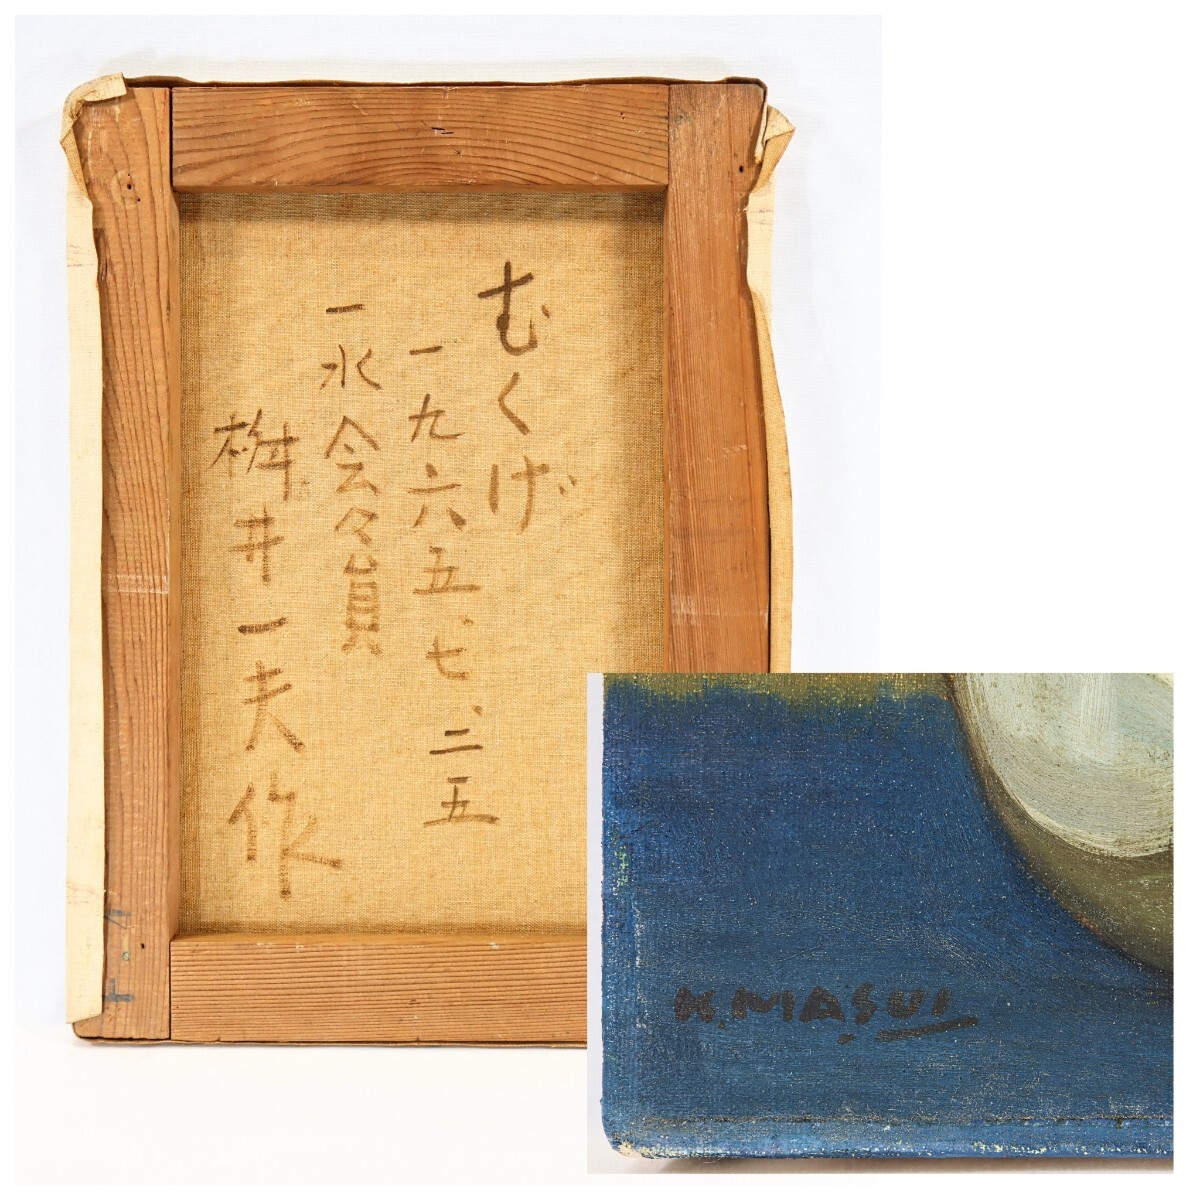 むくげ
一九六五、七、二五
一水会々員
桝井一夫作
F.4
K.MASUI